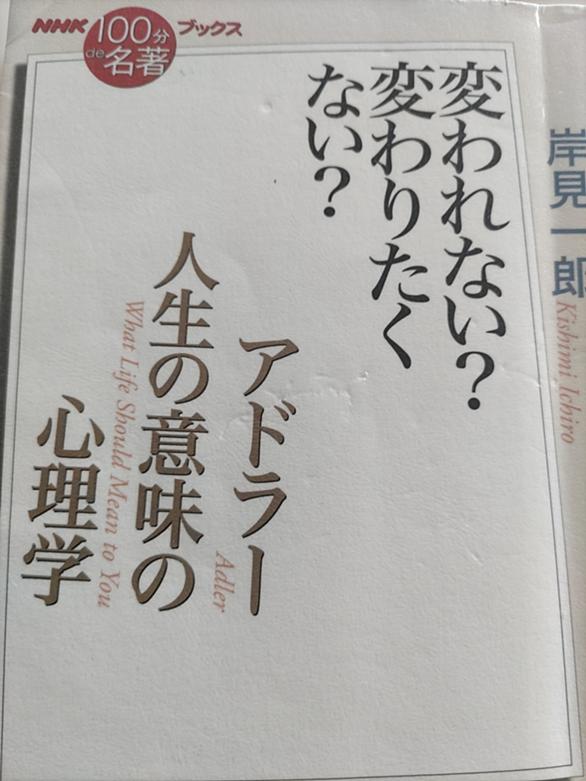 NHK
100分
de名著
ブックス
変われない?
変わりたく
ない?
アドラー
Adler
人生の意味の
心理学
What Life Should Mean to You
岸見一郎
Kishimi Ichiro